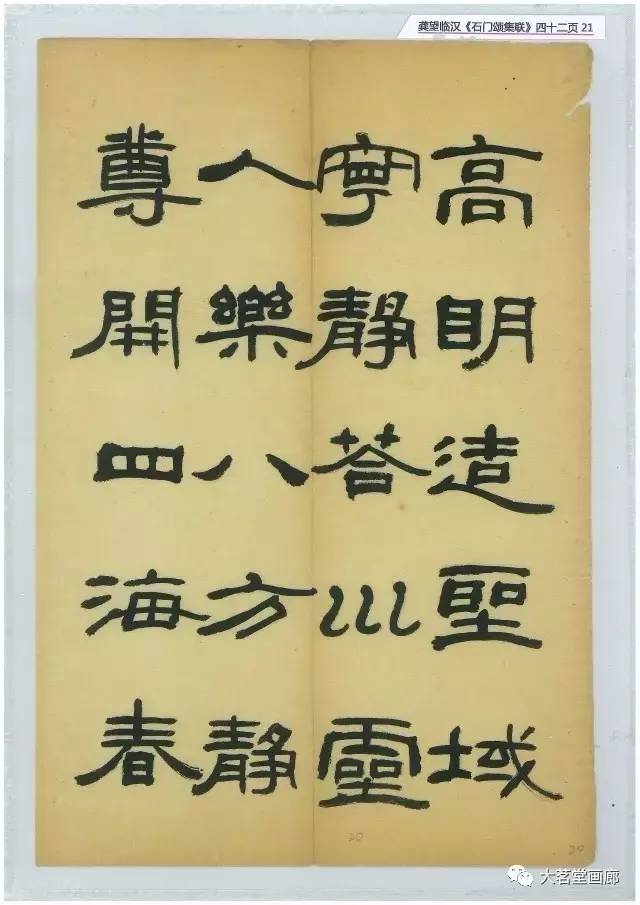 龚望临汉《石门颂集联》四十二页 21
高明造聖域
寧靜荅川靈
人樂八方靜
尊開四海春
20
20
大茗堂画廊